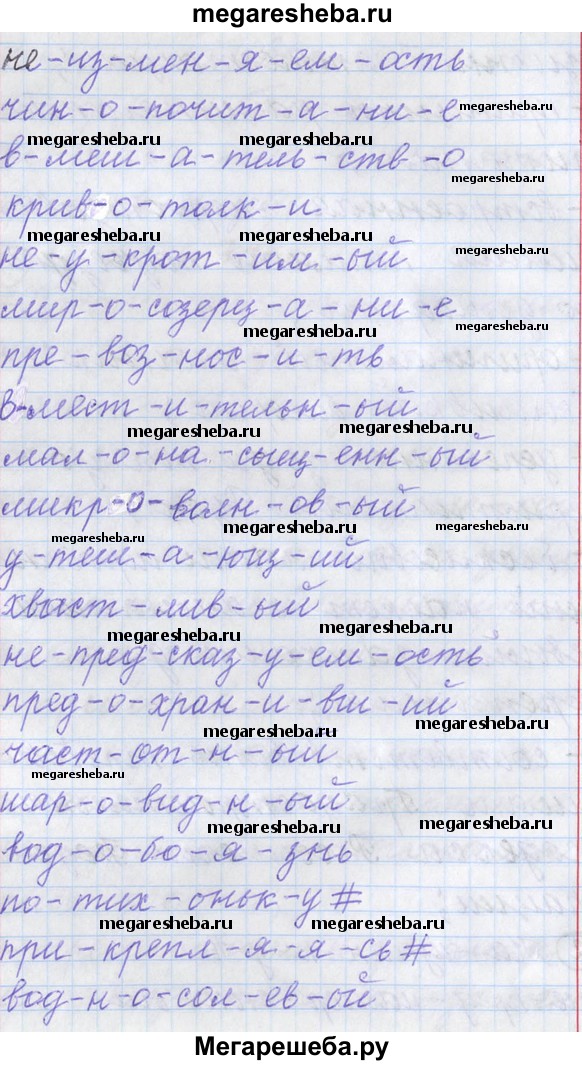 megaresheba.ru
не-из-мен-я-ем-ость
чин-о-почит-а-ни-е
megaresheba.ru
megaresheba.ru megaresheba.ru
в-меш-а-тель-ств-о
megaresheba.ru
крив-о-толк-и
megaresheba.ru megaresheba.ru
не-у-крот-им-ый
мир-о-созерц-а-ни-е
megaresheba.ru megaresheba.ru
пре-воз-нос-и-ть
в-мест-и-тельн-ый
megaresheba.ru megaresheba.ru
мал-о-на-сыщ-енн-ый
микр-о-волн-ов-ый
megaresheba.ru megaresheba.ru
у-теш-а-ющ-ий
хваст-лив-ый
megaresheba.ru megaresheba.ru
не-пред-сказ-у-ем-ость
пред-о-хран-и-вш-ий
megaresheba.ru megaresheba.ru
част-от-н-ый
megaresheba.ru
шар-о-вид-н-ый
megaresheba.ru megaresheba.ru
вод-о-бо-я-знь
по-тих-оньк-у#
megaresheba.ru megaresheba.ru
при-крепл-я-я-сь#
вод-н-о-сол-ев-ый
Мегарешеба.ру